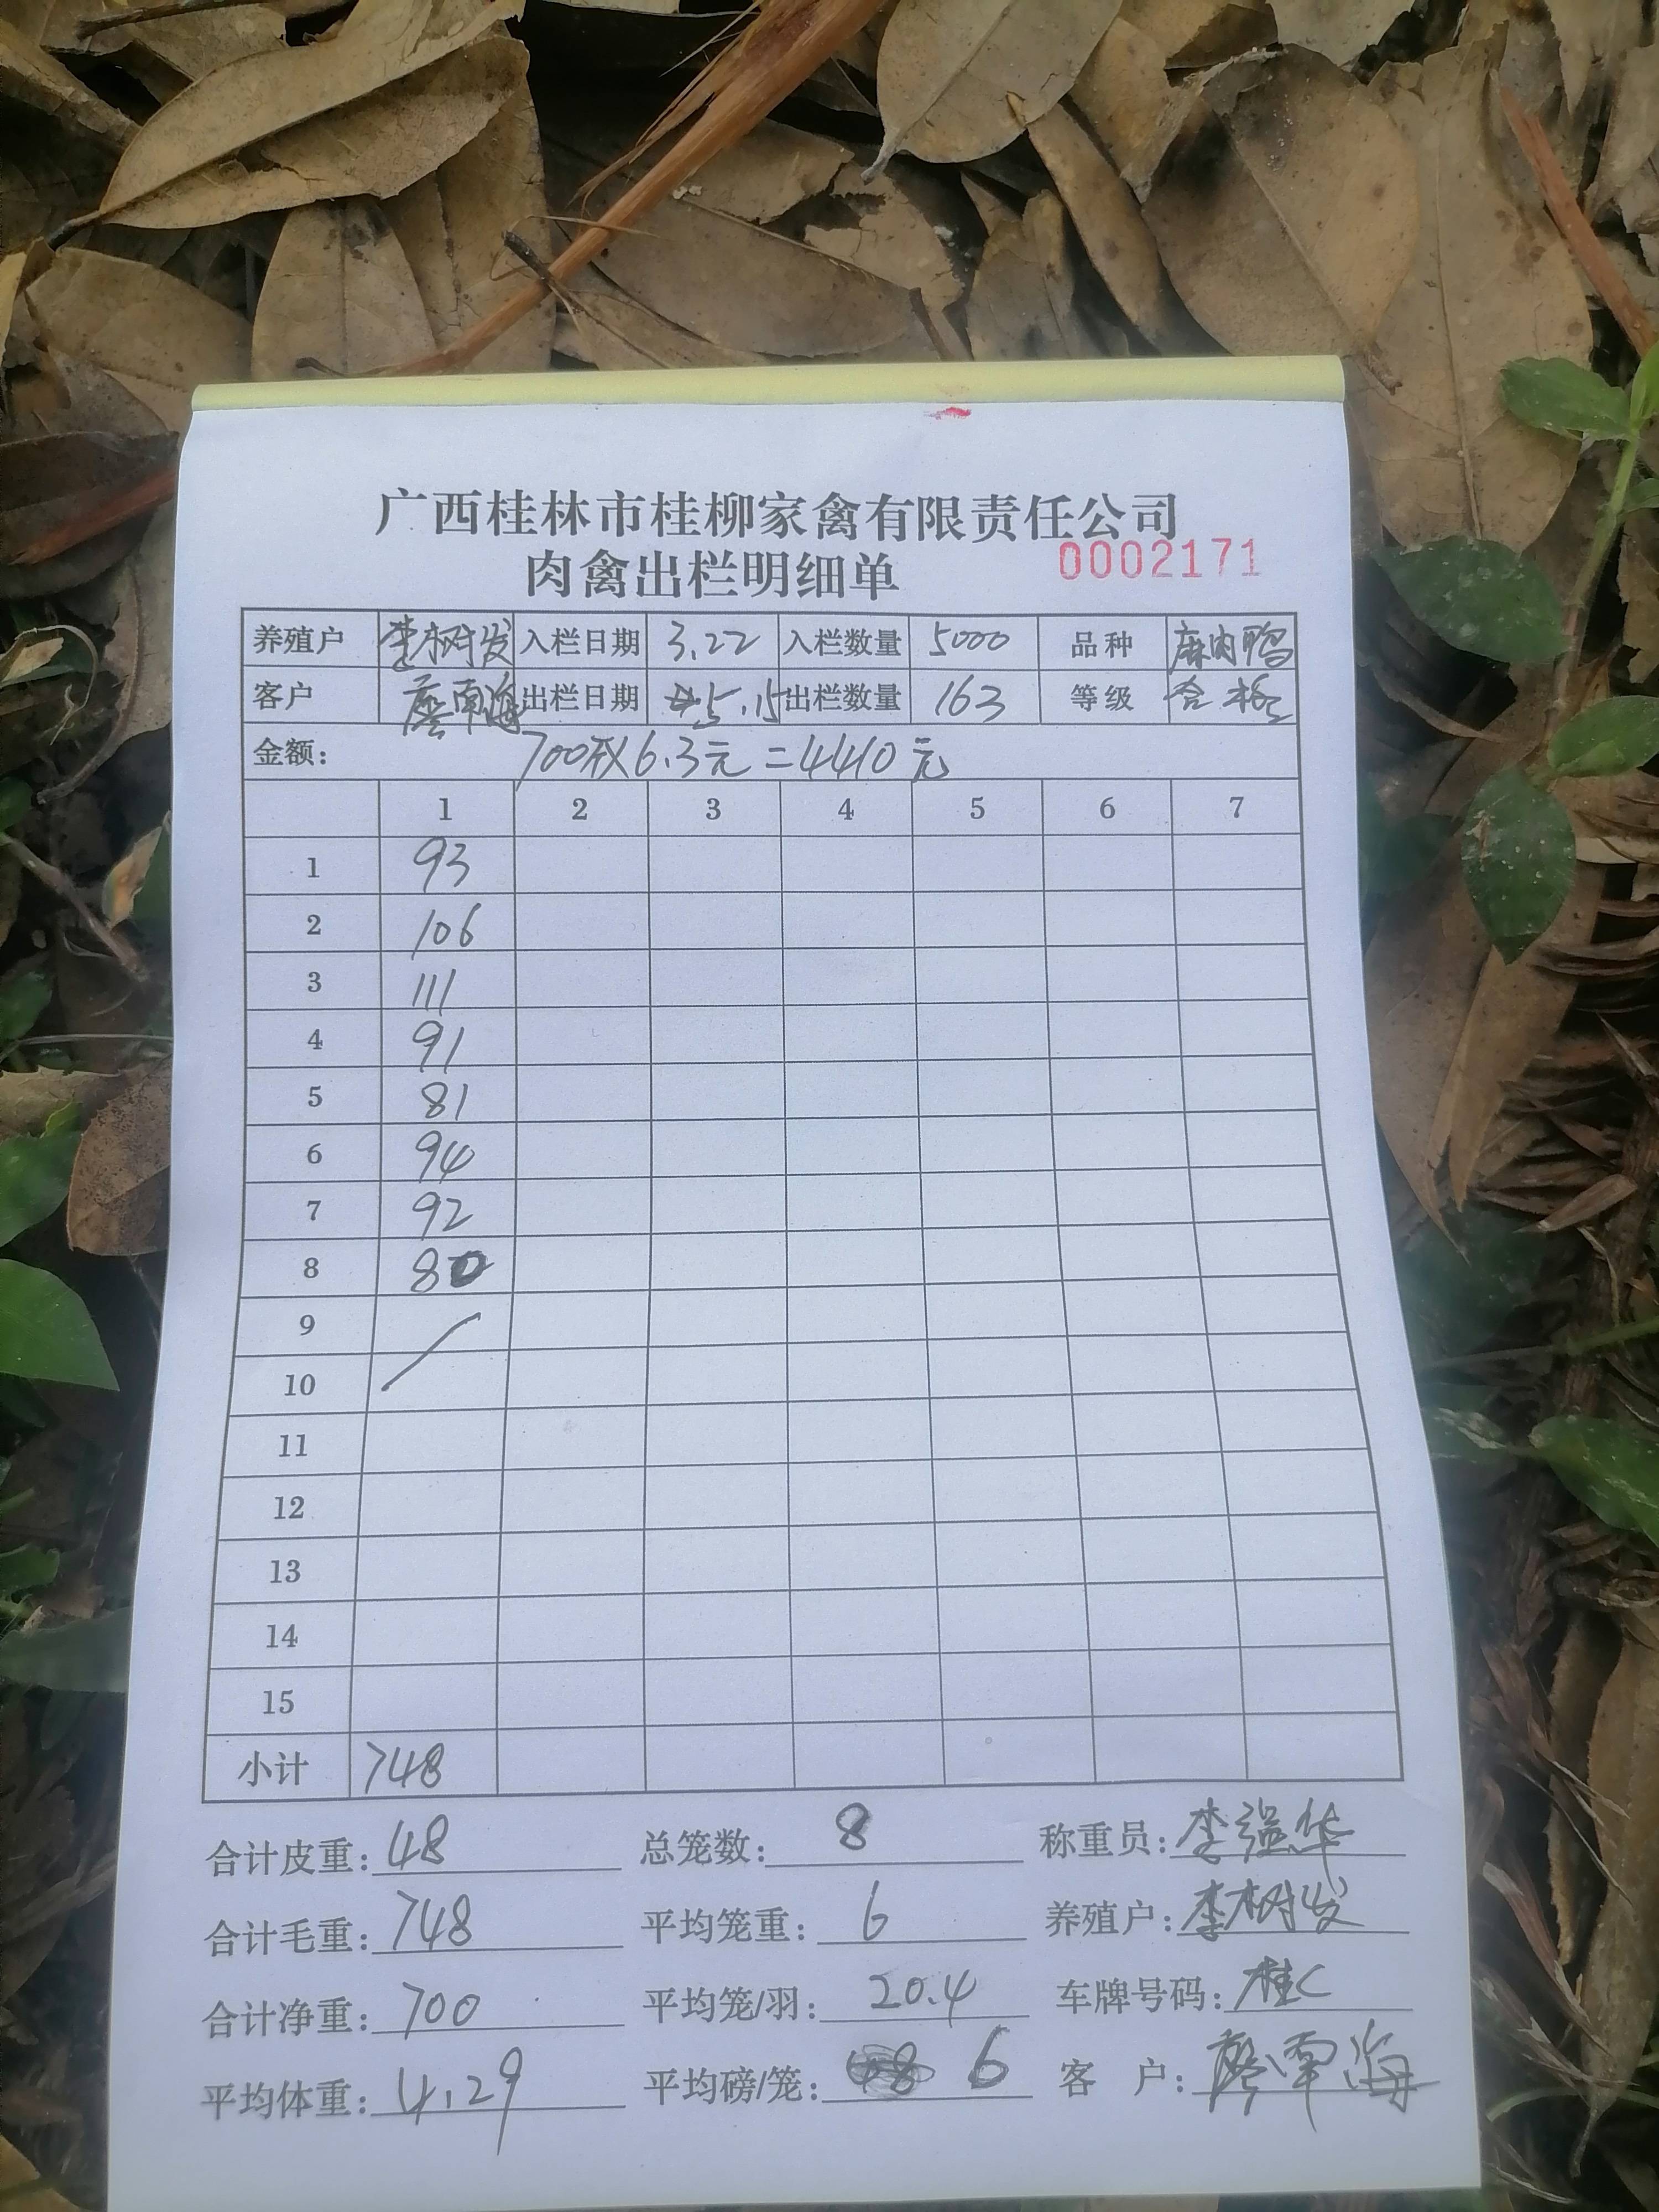 广西桂林市桂柳家禽有限责任公司
肉禽出栏明细单 0002171
养殖户 李树发 入栏日期 3.22 入栏数量 5000 品种 麻肉鸭
客户 廖南海 出栏日期 5.15 出栏数量 163 等级 合格
金额: 700斤X6.3元=4410元
1 2 3 4 5 6 7
1 93
2 106
3 111
4 91
5 81
6 94
7 92
8 80
9
10
11
12
13
14
15
小计 748
合计皮重: 48 总笼数: 8 称重员: 李强华
合计毛重: 748 平均笼重: 6 养殖户: 李树发
合计净重: 700 平均笼/羽: 20.4 车牌号码: 桂C
平均体重: 4.29 平均磅/笼: 6 客户: 廖南海